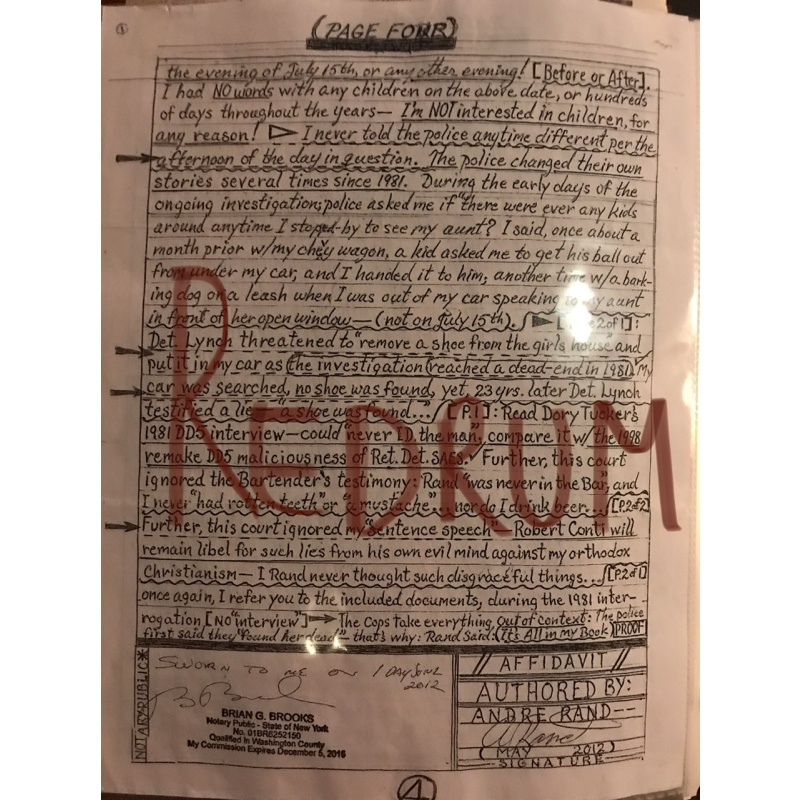 ①
(PAGE FOUR)
the evening of July 15th, or any other evening! [Before or After].
I had NO words with any children on the above date, or hundreds
of days throughout the years— I'm NOT interested in children, for
any reason! ▷ I never told the police anytime different per the
afternoon of the day in question. The police changed their own
stories several times since 1981. During the early days of the
ongoing investigation; police asked me if "there were ever any kids
around anytime I stoped-by to see my aunt? I said, once about a
month prior w/my chevy wagon, a kid asked me to get his ball out
from under my car, and I handed it to him; another time w/a bark-
ing dog on a leash when I was out of my car speaking to my aunt
in front of her open window— (not on July 15th). / ► [P. 2 of 1]:
Det. Lynch threatened to "remove a shoe from the girls house" and
put it in my car as (the investigation (reached a dead-end in 1981). My
car was searched, no shoe was found, yet, 23 yrs. later Det. Lynch
testified a lie— "a shoe was found..." / [P.1]: Read Dory Tucker's
1981 DD5 interview— could "never ID. the man", compare it w/ the 1998
remake DD5 maliciousness of Ret. Det. SAES. Further, this court
ignored the Bartender's testimony: Rand "was never in the Bar", and
I never "had rotten teeth" or "a mustache", nor do I drink beer. / [P.2 of 2]
Further, this court ignored my "sentence speech"— Robert Conti will
remain libel for such lies from his own evil mind against my orthodox
Christianism— I Rand never thought such disgraceful things... / [P.2 of 1]
once again, I refer you to the included documents, during the 1981 inter-
rogation [NO "interview"] → The Cops take everything, out of context: The police
first said they "found her dead"— that's why: Rand Said: (It's All in my Book) PROOF
REDRUM
NOTARY PUBLIC*
SWORN TO ME ON 1 DAY JUNE
2012
BRIAN G. BROOKS
Notary Public - State of New York
No. 01BR6252150
Qualified in Washington County
My Commission Expires December 5, 2015
// AFFIDAVIT //
AUTHORED BY:
ANDRE RAND—
(MAY 2012)
SIGNATURE
④